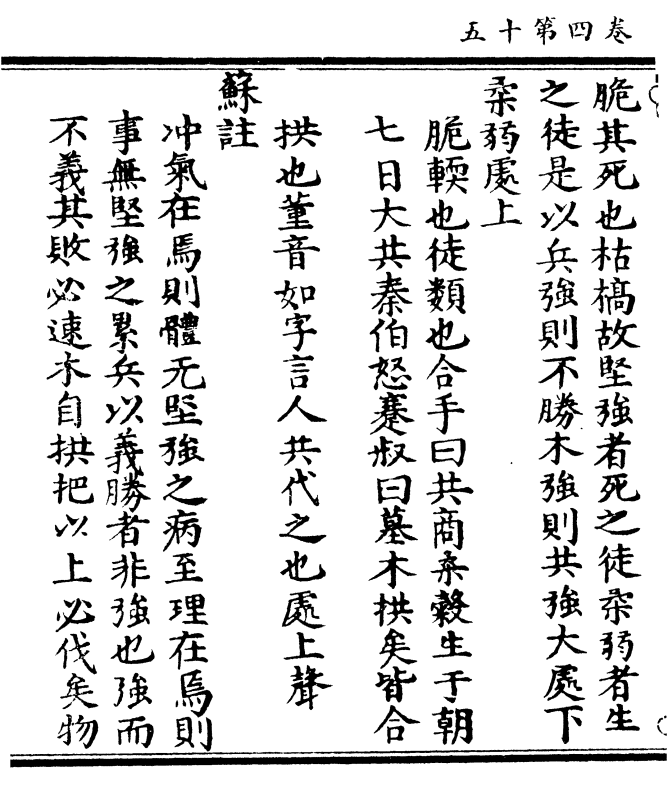 卷四第十五
脆其死也枯槁故堅強者死之徒柔弱者生
之徒是以兵強則不勝木強則共強大處下
柔弱處上
脆輭也徒類也合手曰共商桑榖生于朝
七日大共秦伯怒蹇叔曰墓木拱矣皆合
拱也董音如字言人共伐之也處上聲
蘇註
冲氣在焉則體无堅強之病至理在焉則
事無堅強之累兵以義勝者非強也強而
不義其敗必速木自拱把以上必伐矣物